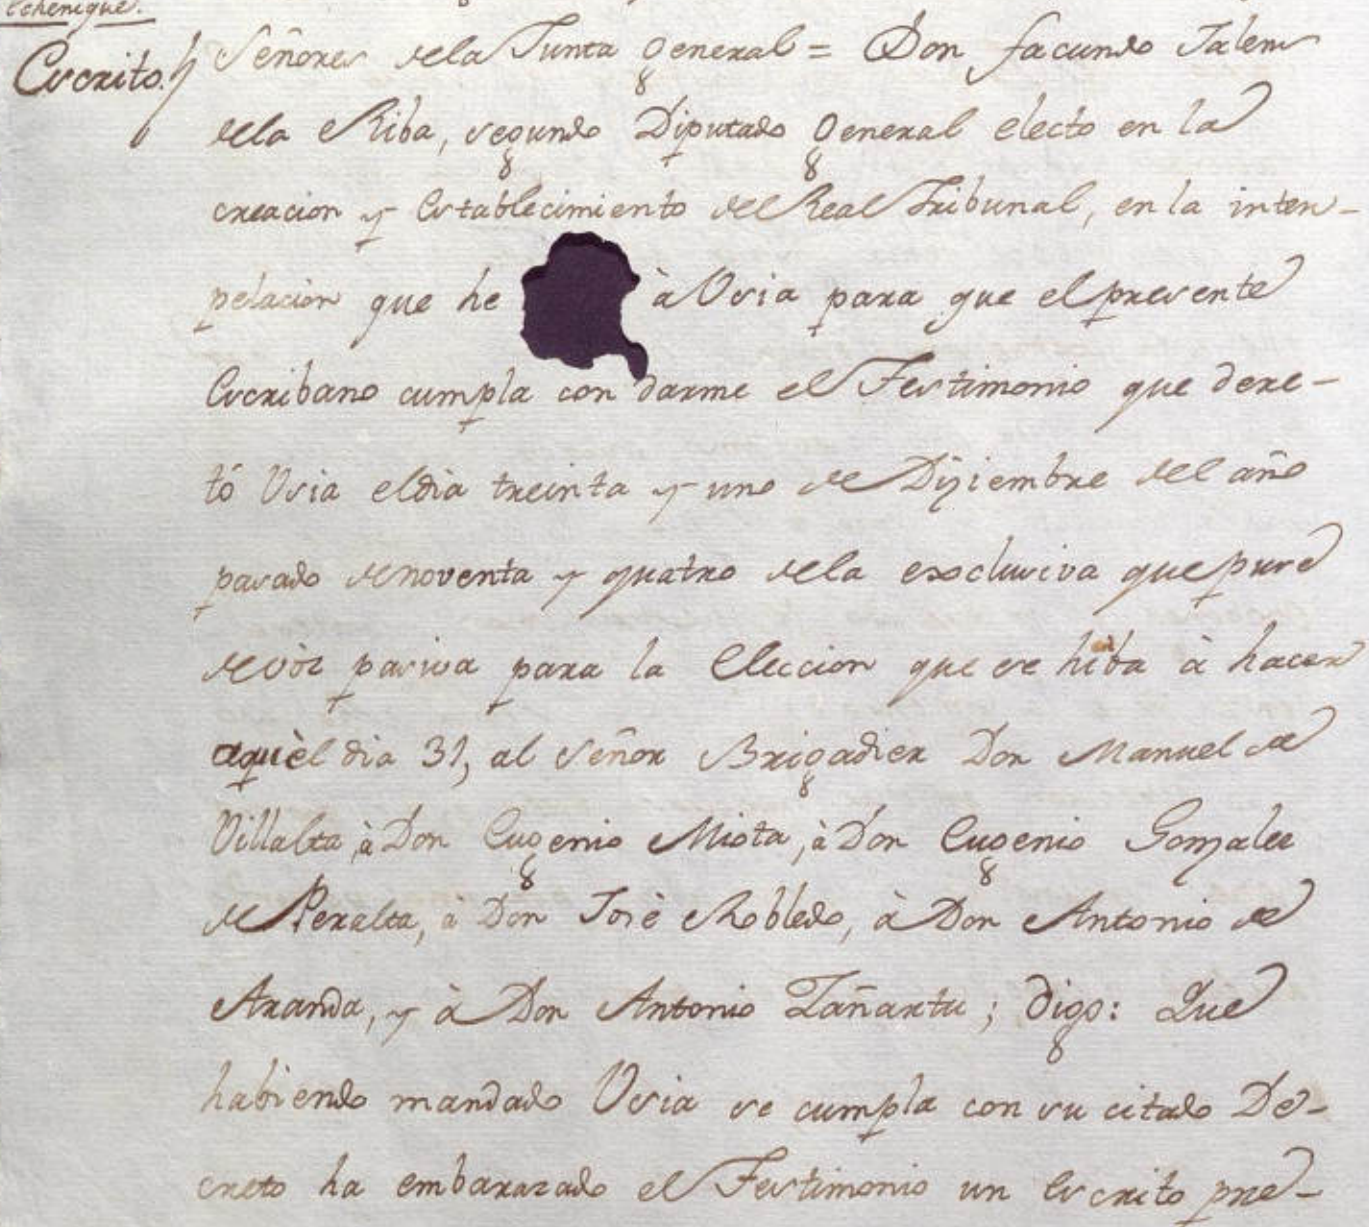 Echenique.
Escrito. Señores dela Junta General = Don facundo Talens
dela Riba, segundo Diputado General electo en la
creacion y Establecimiento del Real Tribunal, en la inter-
pelaciòn que he à Usia para que el presente
Escribano cumpla con darme el Testimonio que dere-
tó Usia eldia treinta y uno de Diziembre del año
pasado de noventa y quatro dela exclusiva que puse
de vòz pasiva para la Eleccion que se hiba à hacer
aquèl dia 31, al Señor Brigadier Don Manuel de
Villalta, à Don Eugenio Miota, à Don Eugenio Gonzales
de Peralta, à Don Josè Robledo, à Don Antonio de
Aranda, y à Don Antonio Zañartu; digo: Que
habiendo mandado Usia se cumpla con su citado De-
creto ha embarazado el Testimonio un Escrito pre-